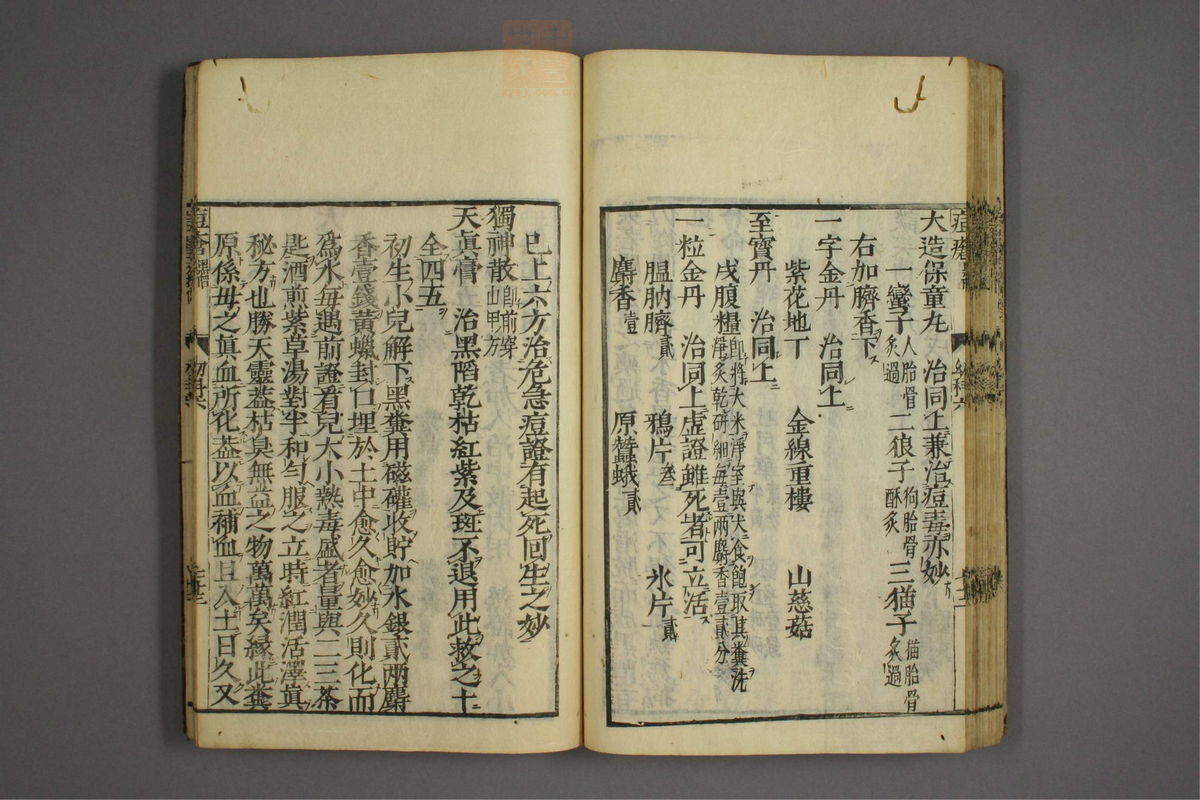 大造保童丸　治同上兼治痘毒亦妙
一蠻子人胎骨炙過二狼子狗胎骨酥炙三猫子猫胎骨炙過
右加臍香下
一字金丹　治同上
紫花地丁　金線重樓　山慈菇
至寶丹　治同上
戌腹糧即將大米淨室與犬食飽取其糞洗淨炙乾研細每壹兩麝香壹貳分
一粒金丹　治同上虛證雖死者可立活
膃肭臍貳　鴉片叁　氷片貳
麝香壹　原蠶蛾貳
已上六方治危急痘證有起死回生之妙
獨神散即前穿山甲方
天眞膏　治黑陷乾枯紅紫及斑不退用此救之十
全四五
初生小兒解下黑糞用磁礶收貯加水銀貳兩麝
香壹錢黃蠟封口埋於土中愈久愈妙久則化而
爲水每遇前證看兒大小熱毒盛者量與二三茶
匙酒煎紫草湯對半和勻服之立時紅潤活澤眞
秘方也勝天靈蓋枯臭無益之物萬萬矣緣此糞
原係母之眞血所化蓋以血補血且入土日久又